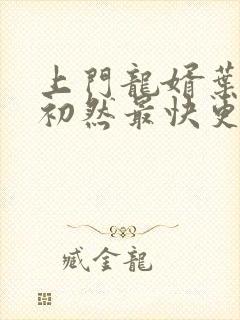 上門龍婿葉
初然最快更
臧金龍